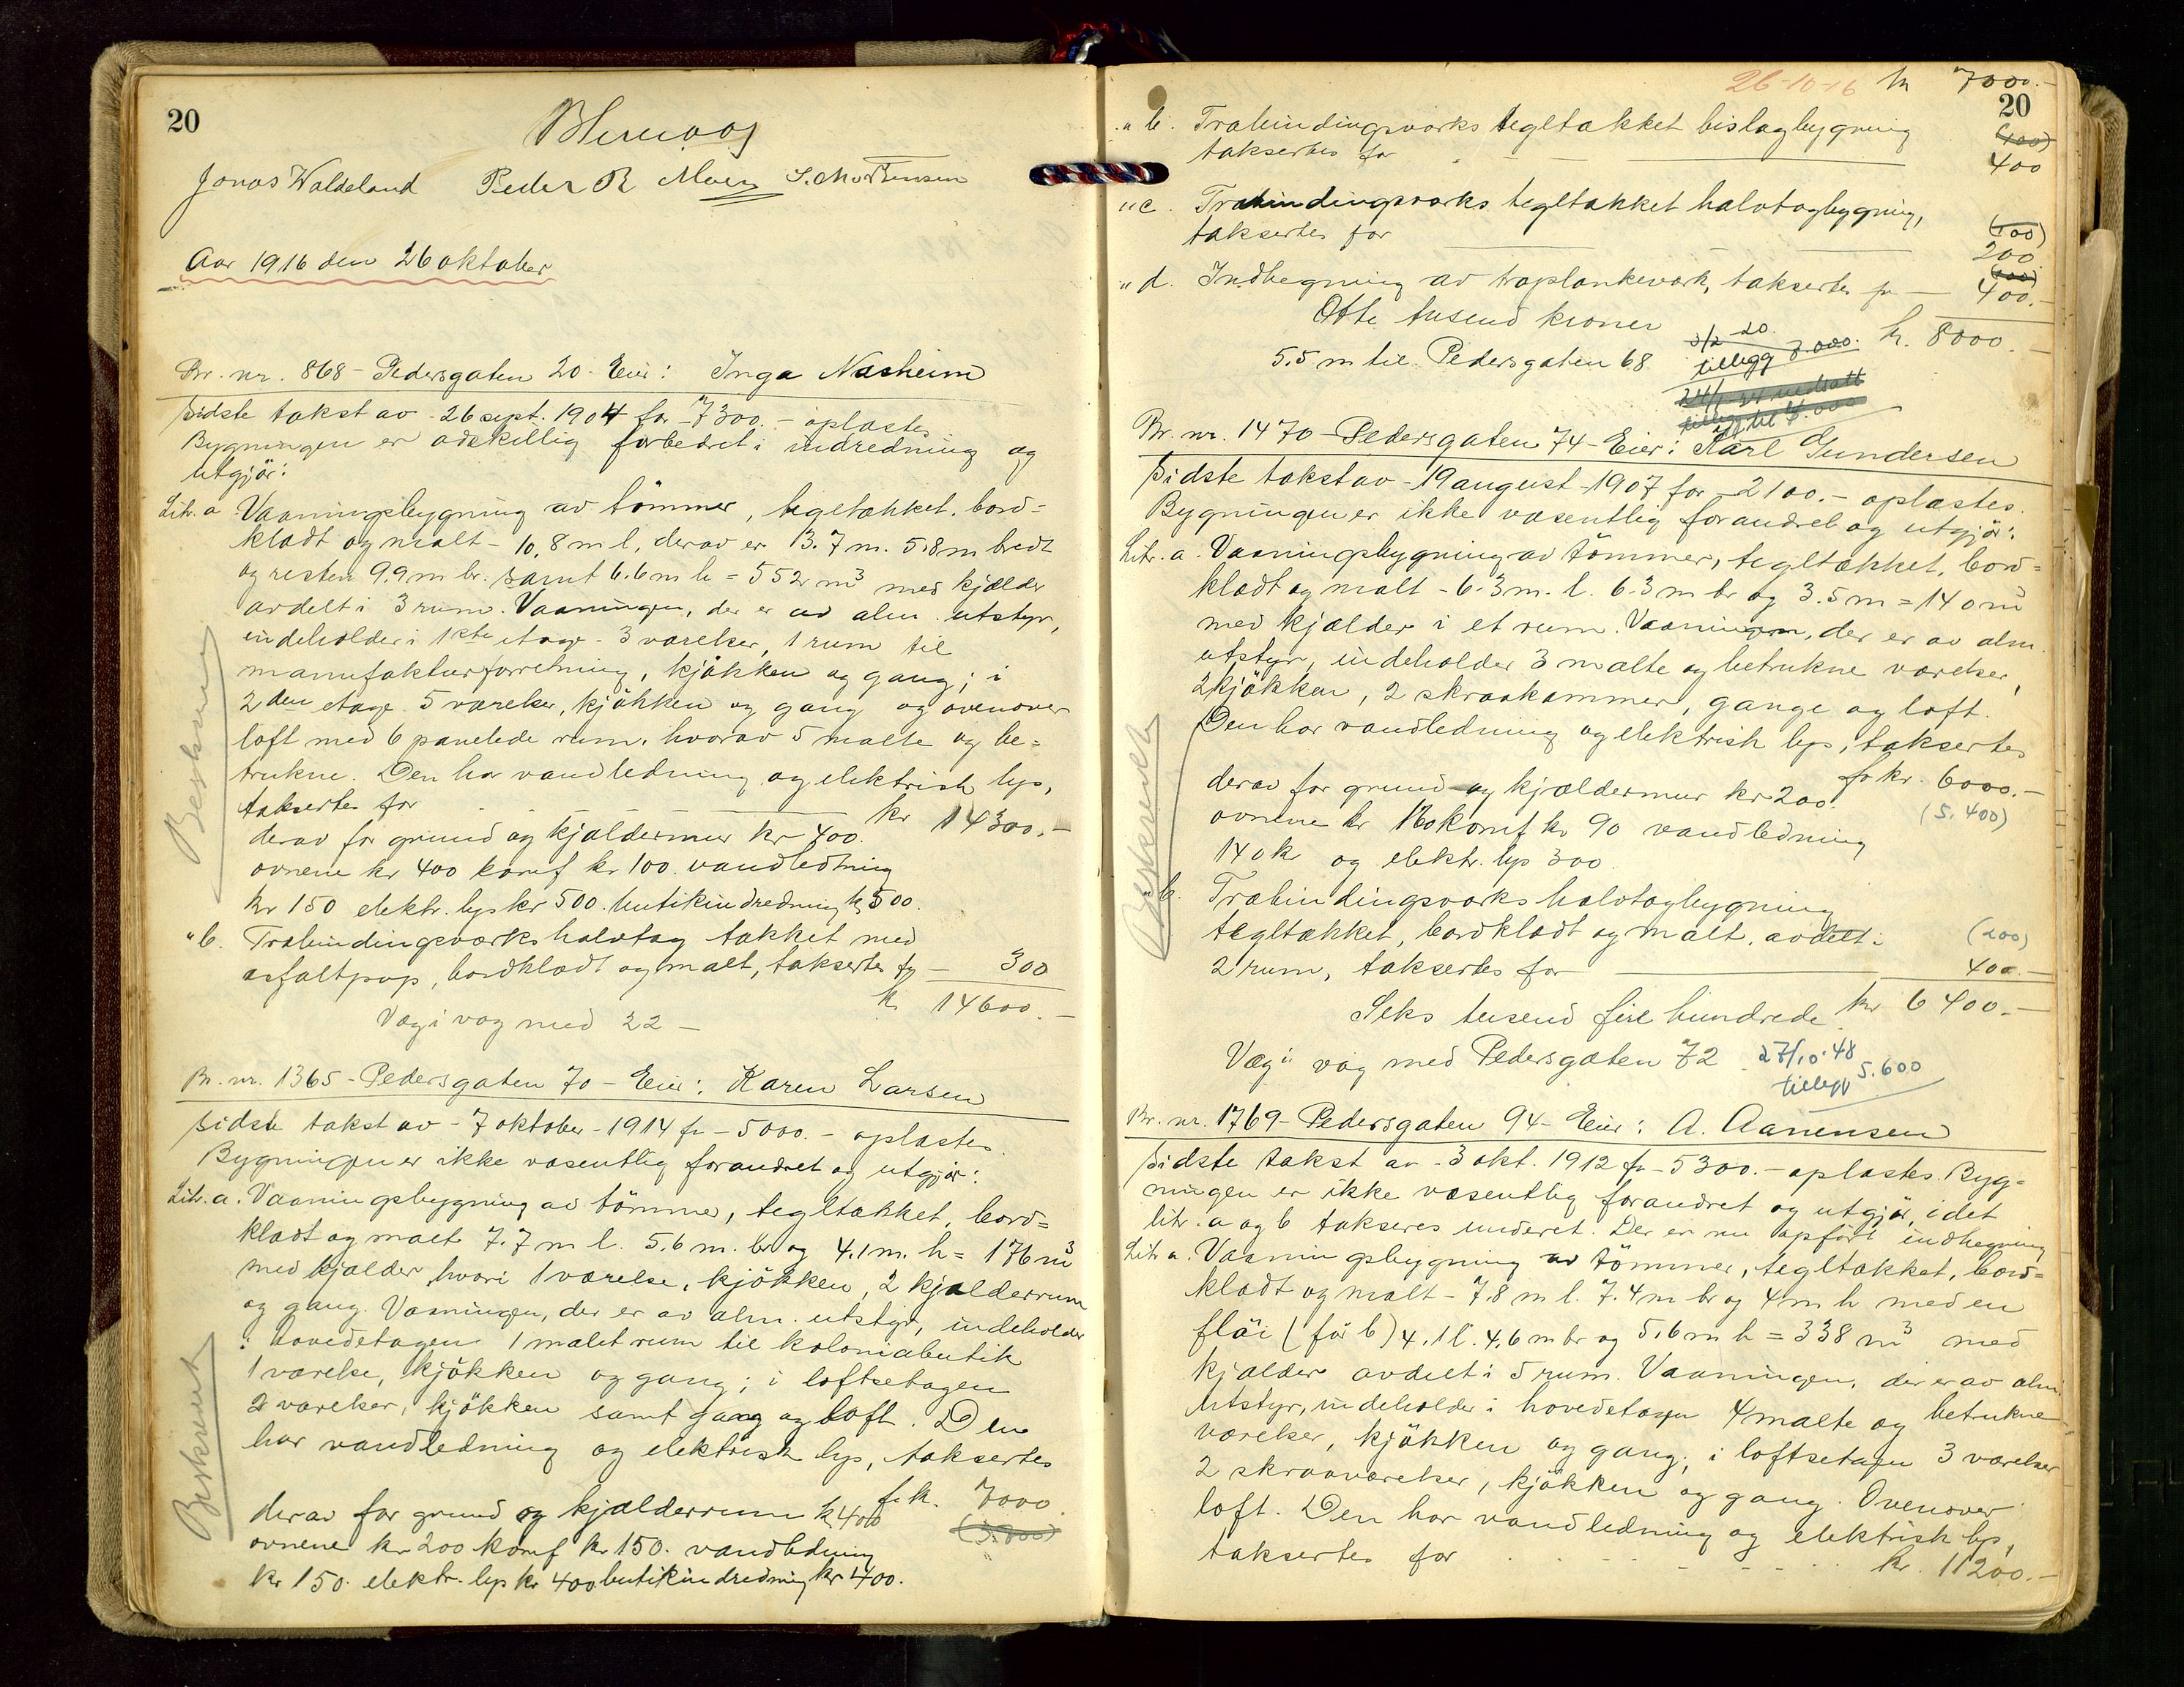 20
Jonas Waldeland Peder R Moen S. Mortensen
Aar 1916 den 26 oktober
Br. nr. 868 - Pedersgaten 20 - Eier: Inga Næsheim
Sidste takst av - 26 sept. 1904 for - 7300. - oplæstes
Bygningen er adskillig forbedret i indredning og
utgjör:
Litr. a Vaaningsbygning av tömmer, tegltækket, bord=
klædt og malt - 10,8 m l, derav er 3.7 m. 5.8 m bredt
og resten 9.9 m br. samt 6.6 m h = 552 m³ med kjælder
avdelt i 3 rum. Vaaningen, der er av alm. utstyr,
indeholder i 1kte etage - 3 værelser, 1 rum til
manufakturforretning, kjökken og gang; i
2den etage 5 værelser, kjökken og gang og ovenover
loft med 6 panelede rum, hvorav 5 malte og be=
trukne. Den har vandledning og elektrisk lys,
taksertes for kr 14300.-
derav for grund og kjældermur kr 400.
ovnene kr 400 komf kr 100. vandledning
kr 150 elektr. lys kr 500. butikindredning kr 500.
" b. Træbindingsværks halvtag tækket med
asfaltpap, bordklædt og malt, taksertes for — 300
kr 14600.-
Væg i væg med 22 -
Beskrevet
Br. nr. 1365 - Pedersgaten 70 - Eier: Karen Larsen
Sidste takst av - 7 oktober - 1914 for - 5000. - oplæstes
Bygningen er ikke væsentlig forandret og utgjör:
Litr. a. Vaaningsbygning av tömmer, tegltækket, bord=
klædt og malt 7.7 m l. 5.6 m. br og 4.1 m. h = 176 m³
med kjælder hvori 1 værelse, kjökken, 2 kjælderrum
og gang. Vaaningen, der er av alm. utstyr, indeholder
i hovedetagen 1 malet rum til kolonialbutik
1 værelse, kjökken og gang; i loftsetagen
2 værelser, kjökken samt gang og loft. Den
har vandledning og elektrisk lys, taksertes
for kr. 7000
derav for grund og kjælderrum kr 400
ovnene kr 200 komf kr 150. vandledning
kr 150. elektr. lys kr 400 butikindredning kr 400.
Beskrevet
26-10-16 kr 7000.-
20
" b. Træbindingsværks tegltækket bislagbygning
taksertes for (400)
400
" c. Træbindingsværks tegltækket halvtagbygning,
taksertes for (100)
200
" d. Indhegning av træplankeverk, taksertes for — 400.-
Otte tusend kroner kr. 8000.-
5.5 m til Pedersgaten 68
tillegg 8.000.
Br. nr. 1470 - Pedersgaten 74 - Eier: Karl Gundersen
Sidste takst av - 19 august - 1907 for - 2100. - oplæstes.
Bygningen er ikke væsentlig forandret og utgjör:
Litr. a. Vaaningsbygning av tömmer, tegltækket, bord=
klædt og malt - 6.3 m. l. 6.3 m br og 3.5 m = 140 m³
med kjælder i et rum. Vaaningen, der er av alm.
utstyr, indeholder 3 malte og betrukne værelser,
2 kjökken, 2 skraakammer, gange og loft.
Den har vandledning og elektrisk lys, taksertes
for kr. 6000.-
derav for grund og kjældermur kr 200. (5.400)
ovnene kr 160 komf kr 90 vandledning
140 kr og elektr. lys 300.
" b. Træbindingsværks halvtagbygning
tegltækket, bordklædt og malt, avdelt i (200)
2 rum, taksertes for 400.-
Seks tusend fire hundrede kr 6400.-
Beskrevet
Væg i væg med Pedersgaten 72 27/10-48
tillegg 5.600
Br. nr. 1769 - Pedersgaten 94 - Eier: A. Aanensen
Sidste takst av - 3 okt. 1912 for - 5300. - oplæstes. Byg=
ningen er ikke væsentlig forandret og utgjör, idet
litr. a og b takseres underet. Der er nu opfört indhegning
Litr a. Vaaningsbygning av tömmer, tegltækket, bord=
klædt og malt - 7.8 m l. 7.4 m br og 4 m h med en
flöi (för b) 4.1 l. 4.6 m br og 5.6 m h = 338 m³ med
kjælder avdelt i 5 rum. Vaaningen, der er av alm.
utstyr, indeholder i hovedetagen 4 malte og betrukne
værelser, kjökken og gang; i loftsetagen 3 værelser
2 skraaværelser, kjökken og gang. Ovenover
loft. Den har vandledning og elektrisk lys,
taksertes for kr. 11200.-